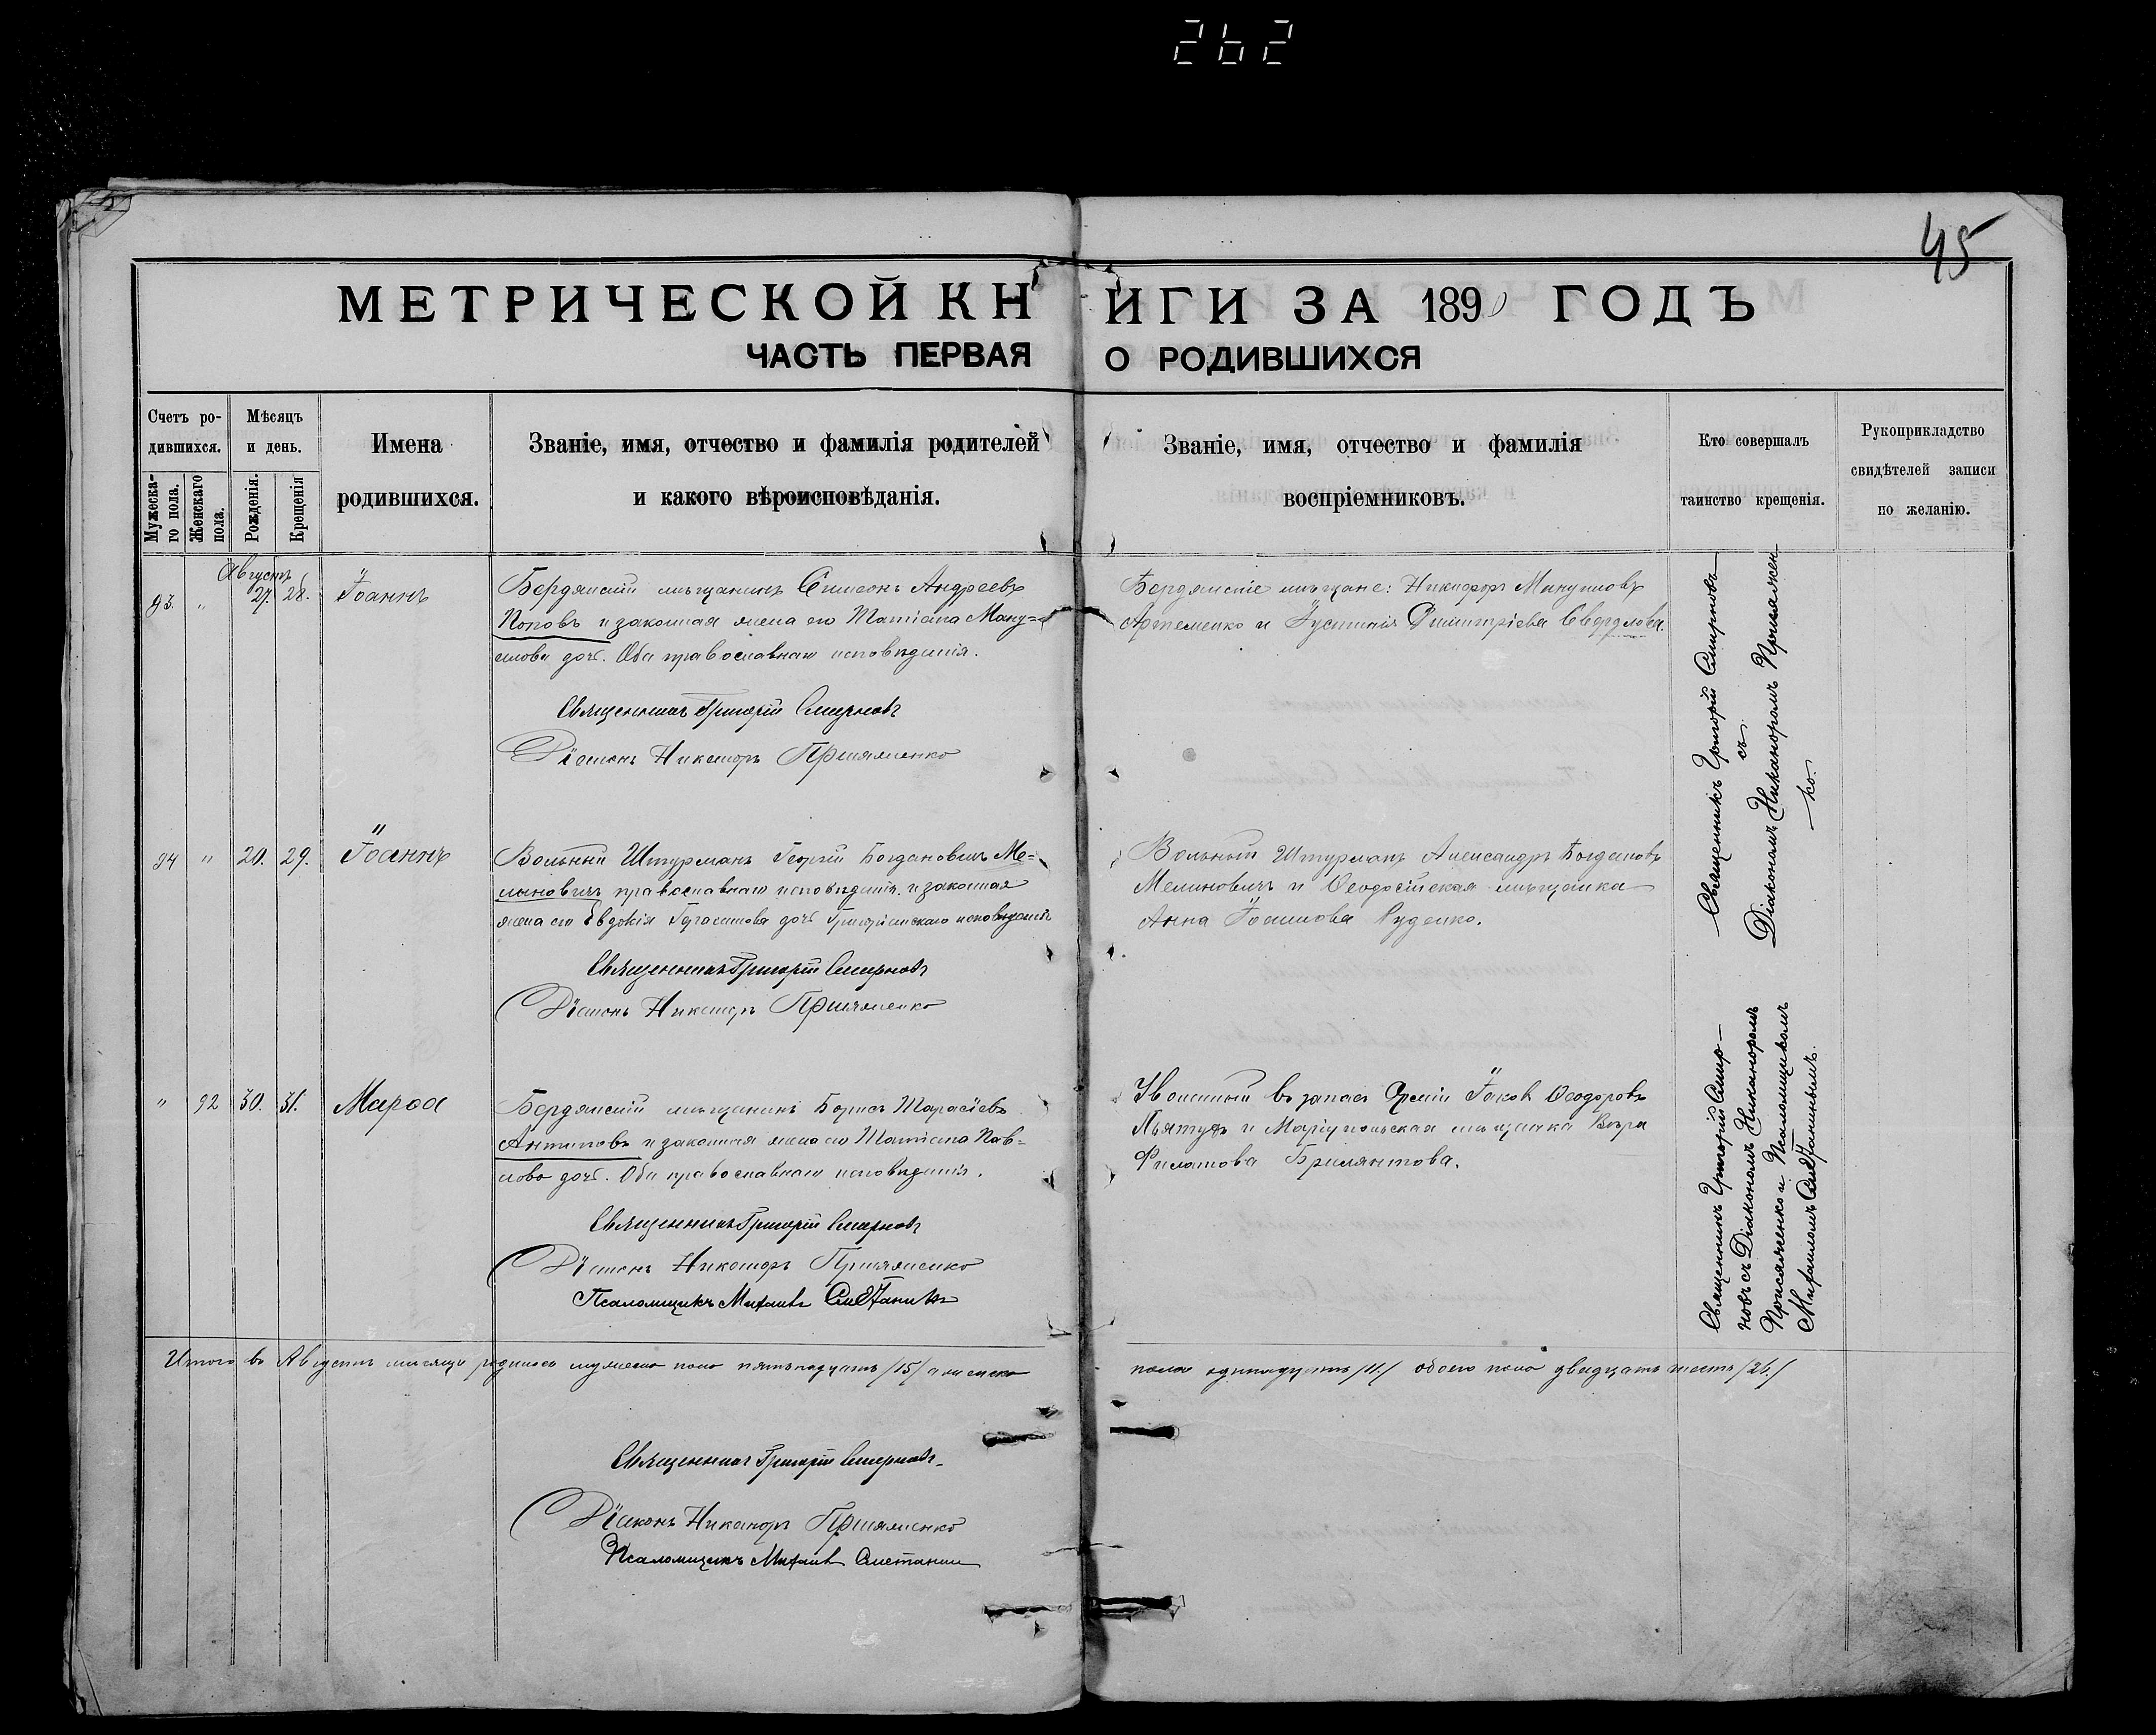 262
45
МЕТРИЧЕСКОЙ КНИГИ ЗА 1890 ГОДЪ
ЧАСТЬ ПЕРВАЯ О РОДИВШИХСЯ
Счетъ ро-
дившихся.
Мужеска-
го пола.
Женскаго
пола.
Мѣсяцъ
и день.
Рожденія.
Крещенія
Имена
родившихся.
Званіе, имя, отчество и фамилія родителей
и какого вѣроисповѣданія.
Званіе, имя, отчество и фамилія
воспріемниковъ.
Кто совершалъ
таинство крещенія.
Рукоприкладство
свидѣтелей записи
по желанію.
Августъ
93. " 27. 28. Іоаннъ
Бердянскій мѣщанинъ Симеонъ Андреевъ
Поповъ и законная жена его Татіана Ману=
илова дочь. Оба православнаго исповѣданія.
Священникъ Григорій Смирновъ
Діаконъ Никаноръ Присяженко
Бердянскіе мѣщане: Никифоръ Мануиловъ
Артеменко и Іустинія Димитріева Свердлова.
Священникъ Григорій Смирновъ
съ
Діакономъ Никаноромъ Присяжен
ко.
94 " 20. 29. Іоаннъ
Вольный Штурманъ Георгій Богдановичъ Ме=
линовичъ православнаго исповѣданія и законная
жена его Евдокія Герасимова дочь Григоріанскаго исповѣданія
Священникъ Григорій Смирновъ
Діаконъ Никаноръ Присяженко
Вольный Штурманъ Александръ Богдановъ
Мелиновичъ и Ѳеодосійская мѣщанка
Анна Іоакимова Руденко.
" 92 30. 31. Марѳа
Бердянскій мѣщанинъ Борисъ Тарасіевъ
Антиповъ и законная жена его Татіана Пав=
лова дочь. Оба православнаго исповѣданія.
Священникъ Григорій Смирновъ
Діаконъ Никаноръ Присяженко
Псаломщикъ Михаилъ Сметанинъ
Уволенный въ запасъ Арміи Іаковъ Ѳеодоровъ
и Маріупольская мѣщанка Вѣра
Филатова Брилянтова.
Священникъ Григорій Смир-
новъ съ Діакономъ Никаноромъ
Присяженко и Псаломщикомъ
Михаиломъ Сметанинымъ.
Итого въ Августѣ мѣсяцѣ родилось мужеска пола пятнадцать /15/ а женска
пола одинадцать /11./ обоего пола двадцать шесть /26./
Священникъ Григорій Смирновъ
Діаконъ Никаноръ Присяженко
Псаломщикъ Михаилъ Сметанинъ